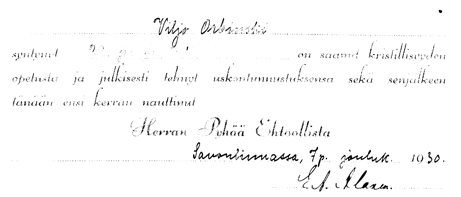 Viljo
syntynyt on saanut kristillisyyden
opetusta ja julkisesti tehnyt uskontunnustuksensa sekä senjälkeen
tänään ensi kerran nauttinut
Herran Pyhää Ehtoollista
Savonlinnassa, 7 p. jouluk. 1930.